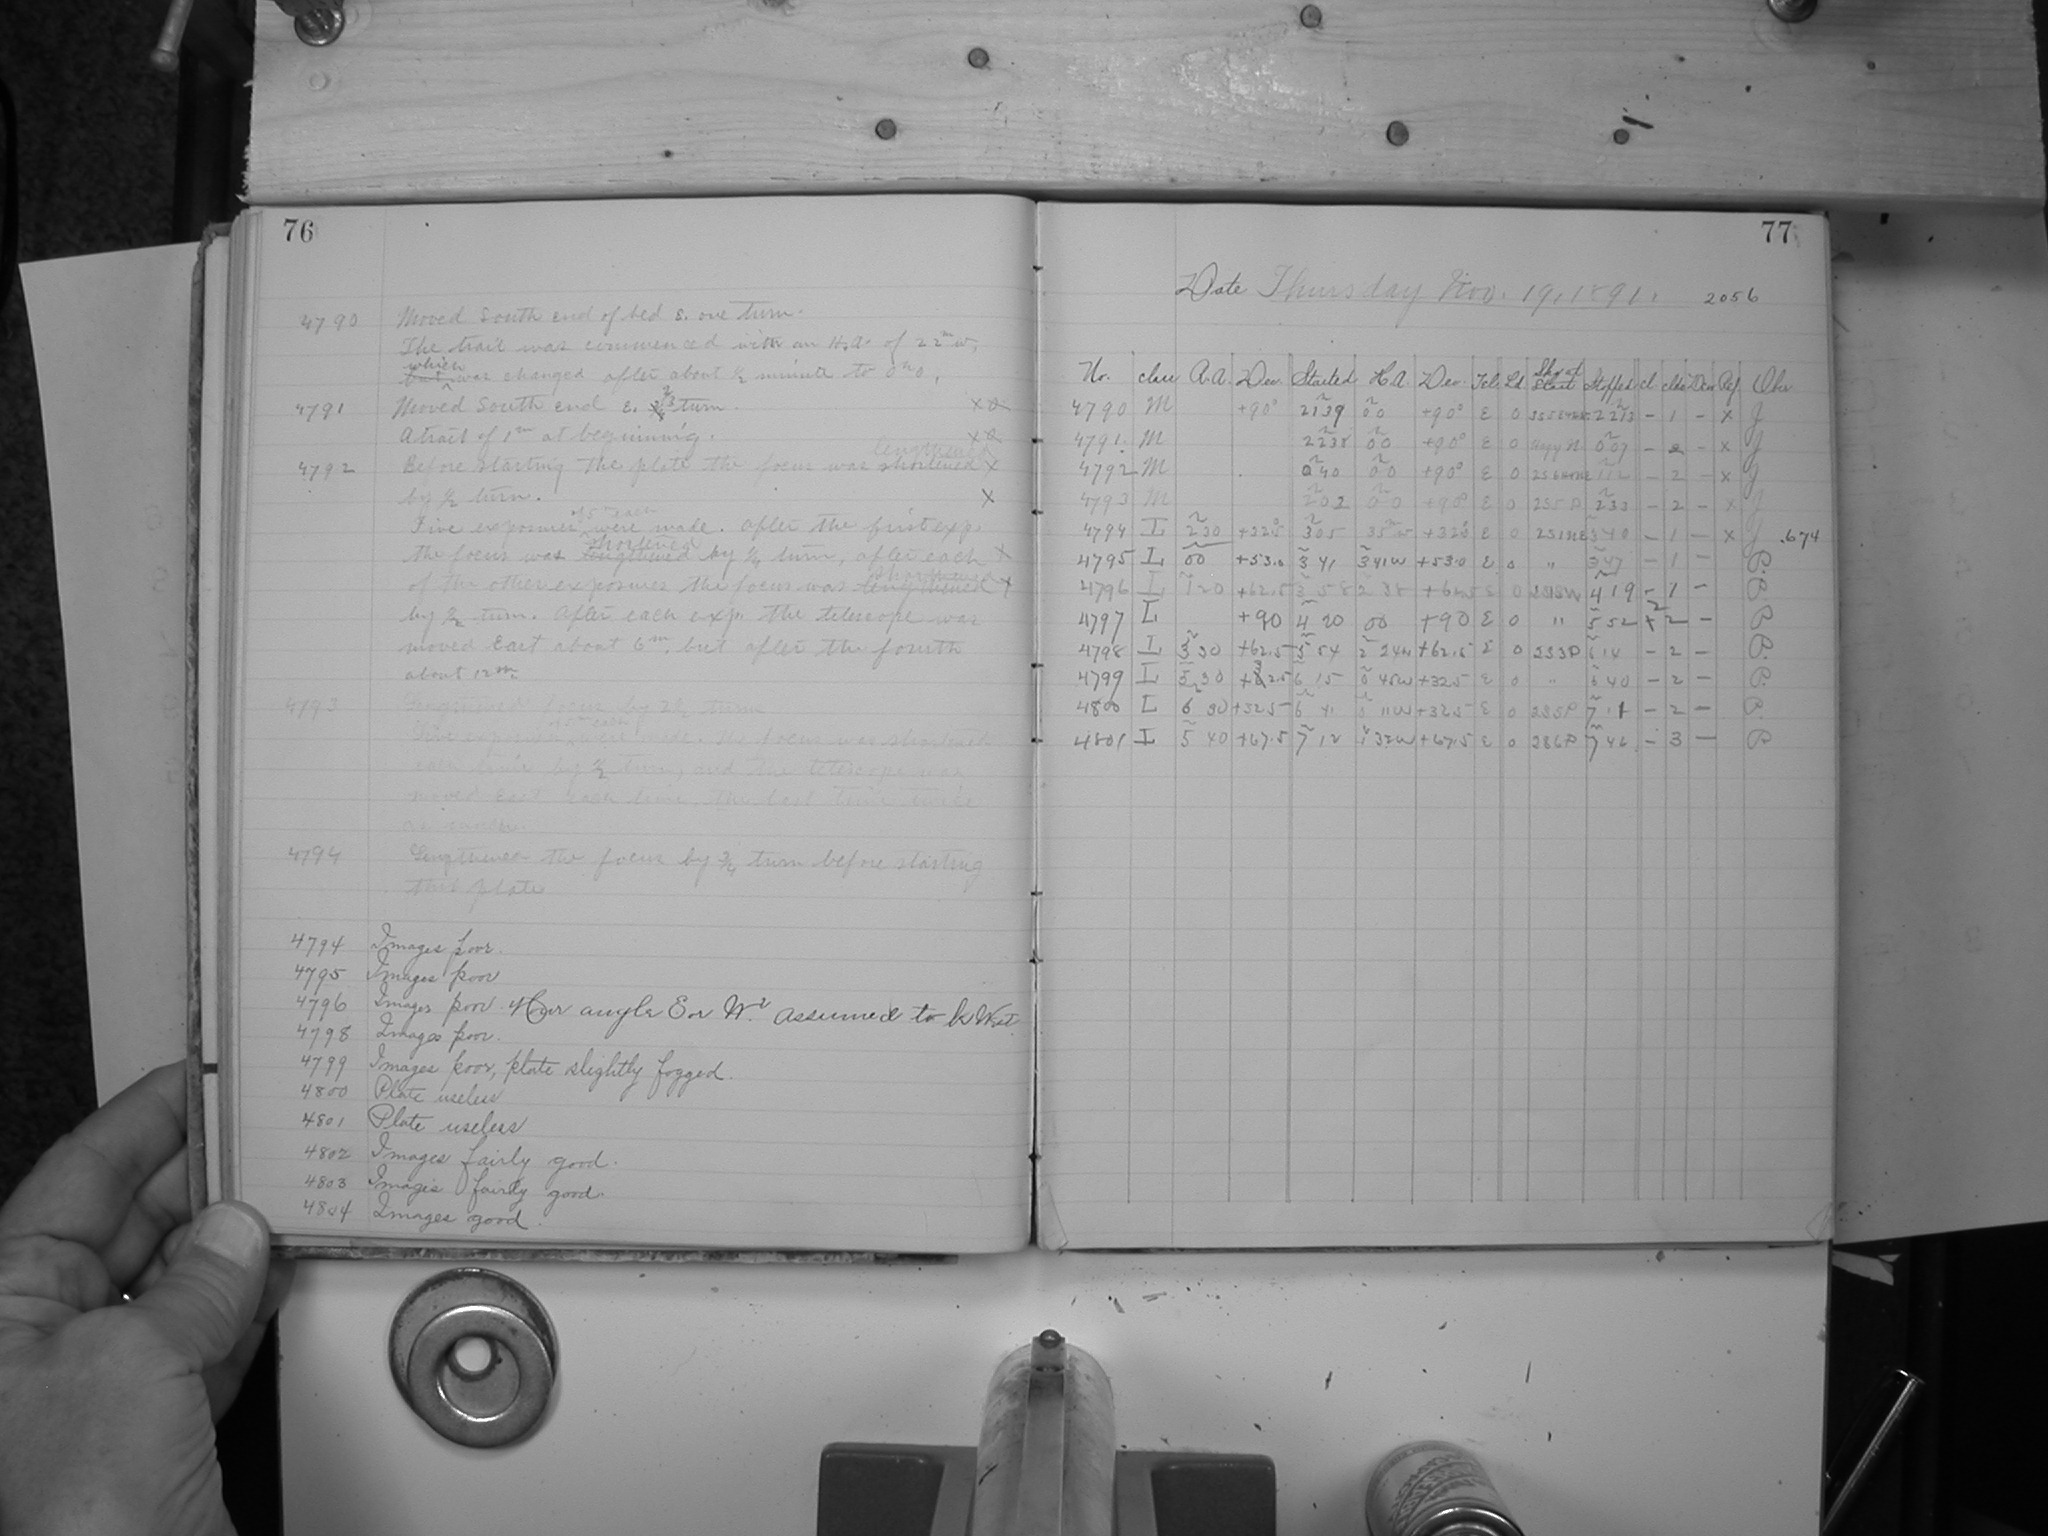 76
4790 Moved South end of bed E. one turn.
The trail was commenced with an H.A. of 22m W,
which
but was changed after about ½ minute to 0h 0,
4791 Moved South end E. ⅔ turn. x
A trail of 1m at beginning. x
lengthened
4792 Before starting the plate the focus was shortened x
by ½ turn. x
of 5m each
Five exposures were made. After the first exp.
shortened
the focus was lengthened by ½ turn, after each x
shortened
of the other exposures the focus was lengthened x
by ½ turn. After each exp. the telescope was
moved East about 6m, but after the fourth
about 12m
4793 Lengthened focus by 2½ turn
of 5m each
Five exposures were made. The focus was shortened
each time by ½ turn, and the telescope was
moved East each time, the last time twice
as much.
4794 Lengthened the focus by ¾ turn before starting
this plate
4794 Images poor.
4795 Images poor
4796 Images poor. Hour angle E or W? assumed to be West.
4798 Images poor.
4799 Images poor, plate slightly fogged.
4800 Plate useless
4801 Plate useless
4802 Images fairly good.
4803 Images fairly good.
4804 Images good.
77
Date Thursday Nov. 19, 1891. 2056
No. class R.A. Dec. Started H.A. Dec. Tel. Ld Sky at Start Stopped cl clks Dew Rej. Obsr
4790 M +90° 21 39 0 0 +90° E 0 22 13 - 1 - x J
4791. M 22 38 0 0 +90° E 0 0 07 - 2 - x J
4792 M 0 40 0 0 +90° E 0 1 12 - 2 - x J
4793 M 2 02 0 0 +90° E 0 255 P 2 33 - 2 - x J
4794 I 2 30 +32.5 3 05 35 W +32.5 E 0 251 NE 3 40 - 1 - x J .674
4795 I 00 +53.0 3 41 3 41 W +53.0 E 0 " 3 47 - 1 - P.
4796 I 1 20 +62.5 3 58 2 38 +62.5 E 0 4 19 - 1 - P
4797 I +90 4 20 00 +90 E 0 " 5 52 2 - P
4798 I 3 30 +62.5 5 54 2 24 W +62.5 E 0 233 P 6 14 - 2 - P.
4799 I 5 30 +32.5 6 15 0 45 W +32.5 E 0 " 6 40 - 2 - P.
4800 I 6 30 +32.5 6 41 0 11 W +32.5 E 0 235 P 7 11 - 2 - P.
4801 I 5 40 +67.5 7 12 1 32 W +67.5 E 0 286 P 7 42 - 3 - P